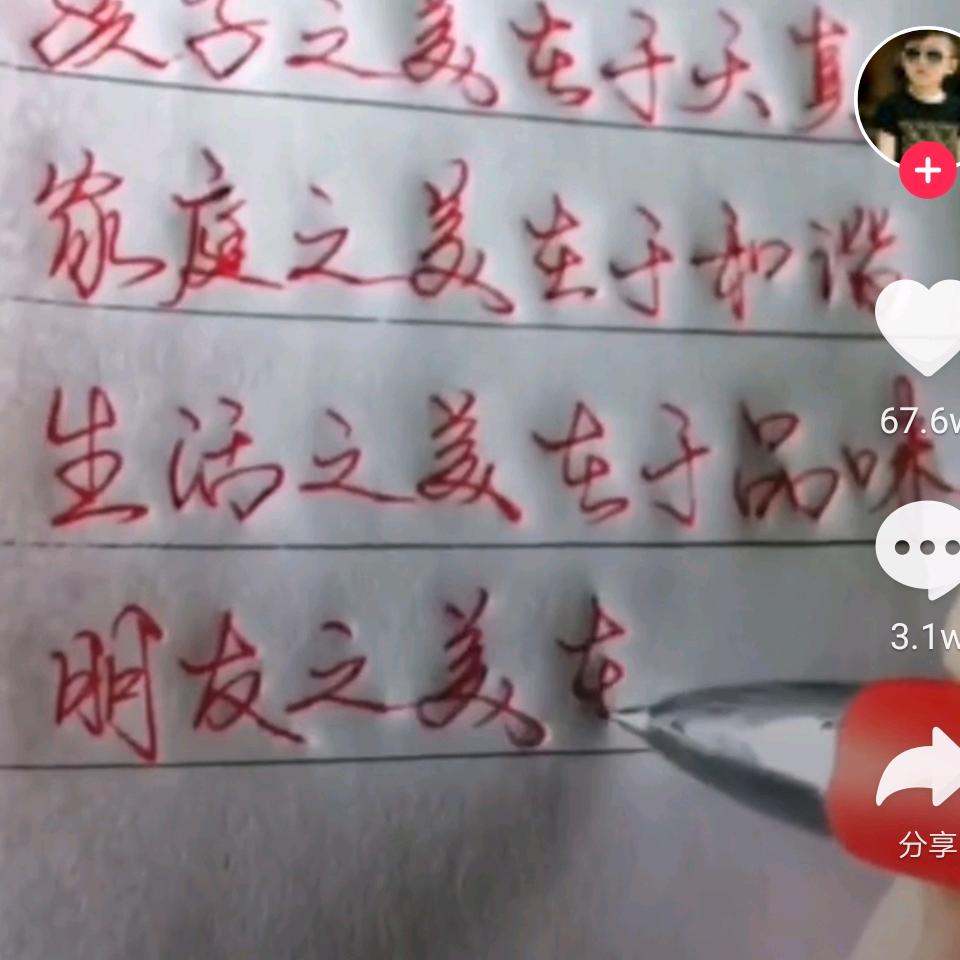 孩子之美在于天真
家庭之美在于和谐
生活之美在于品味
朋友之美在
67.6w
3.1w
分享